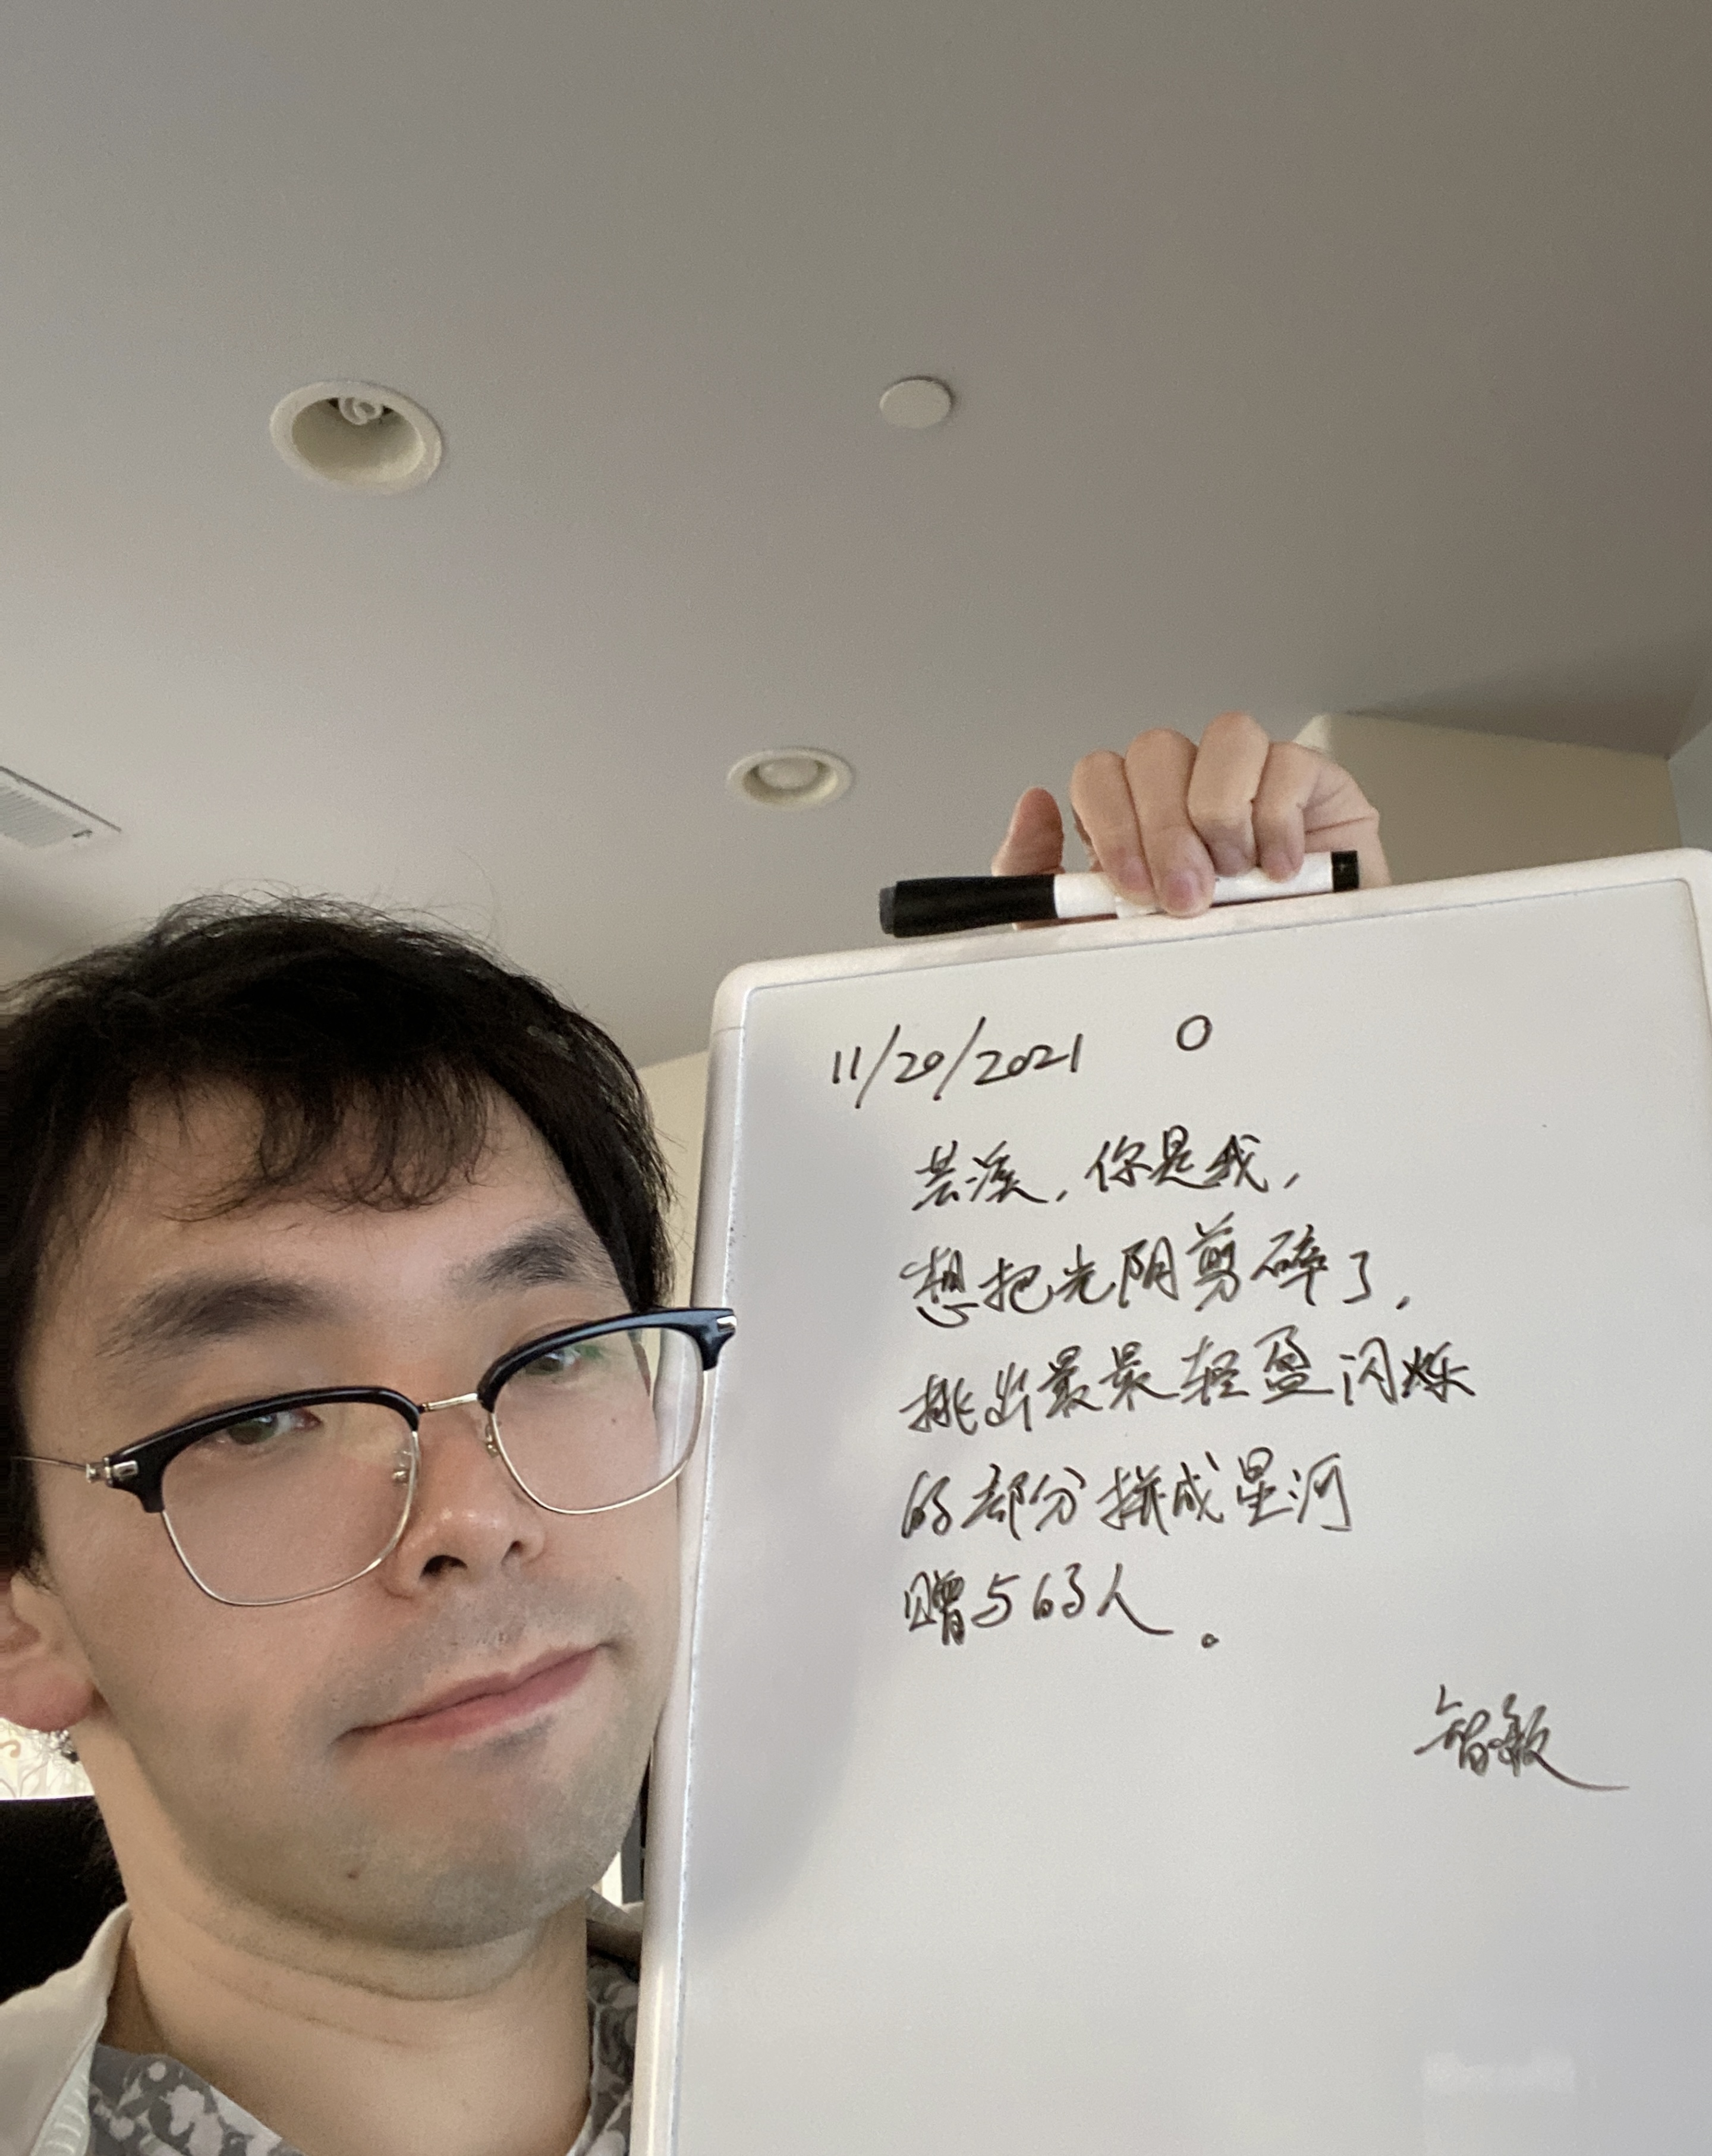 11/20/2021 0
芸溪,你是我,
想把光阴剪碎了,
挑出最最轻盈闪烁
的部分拼成星河
赠与的人。
智敏